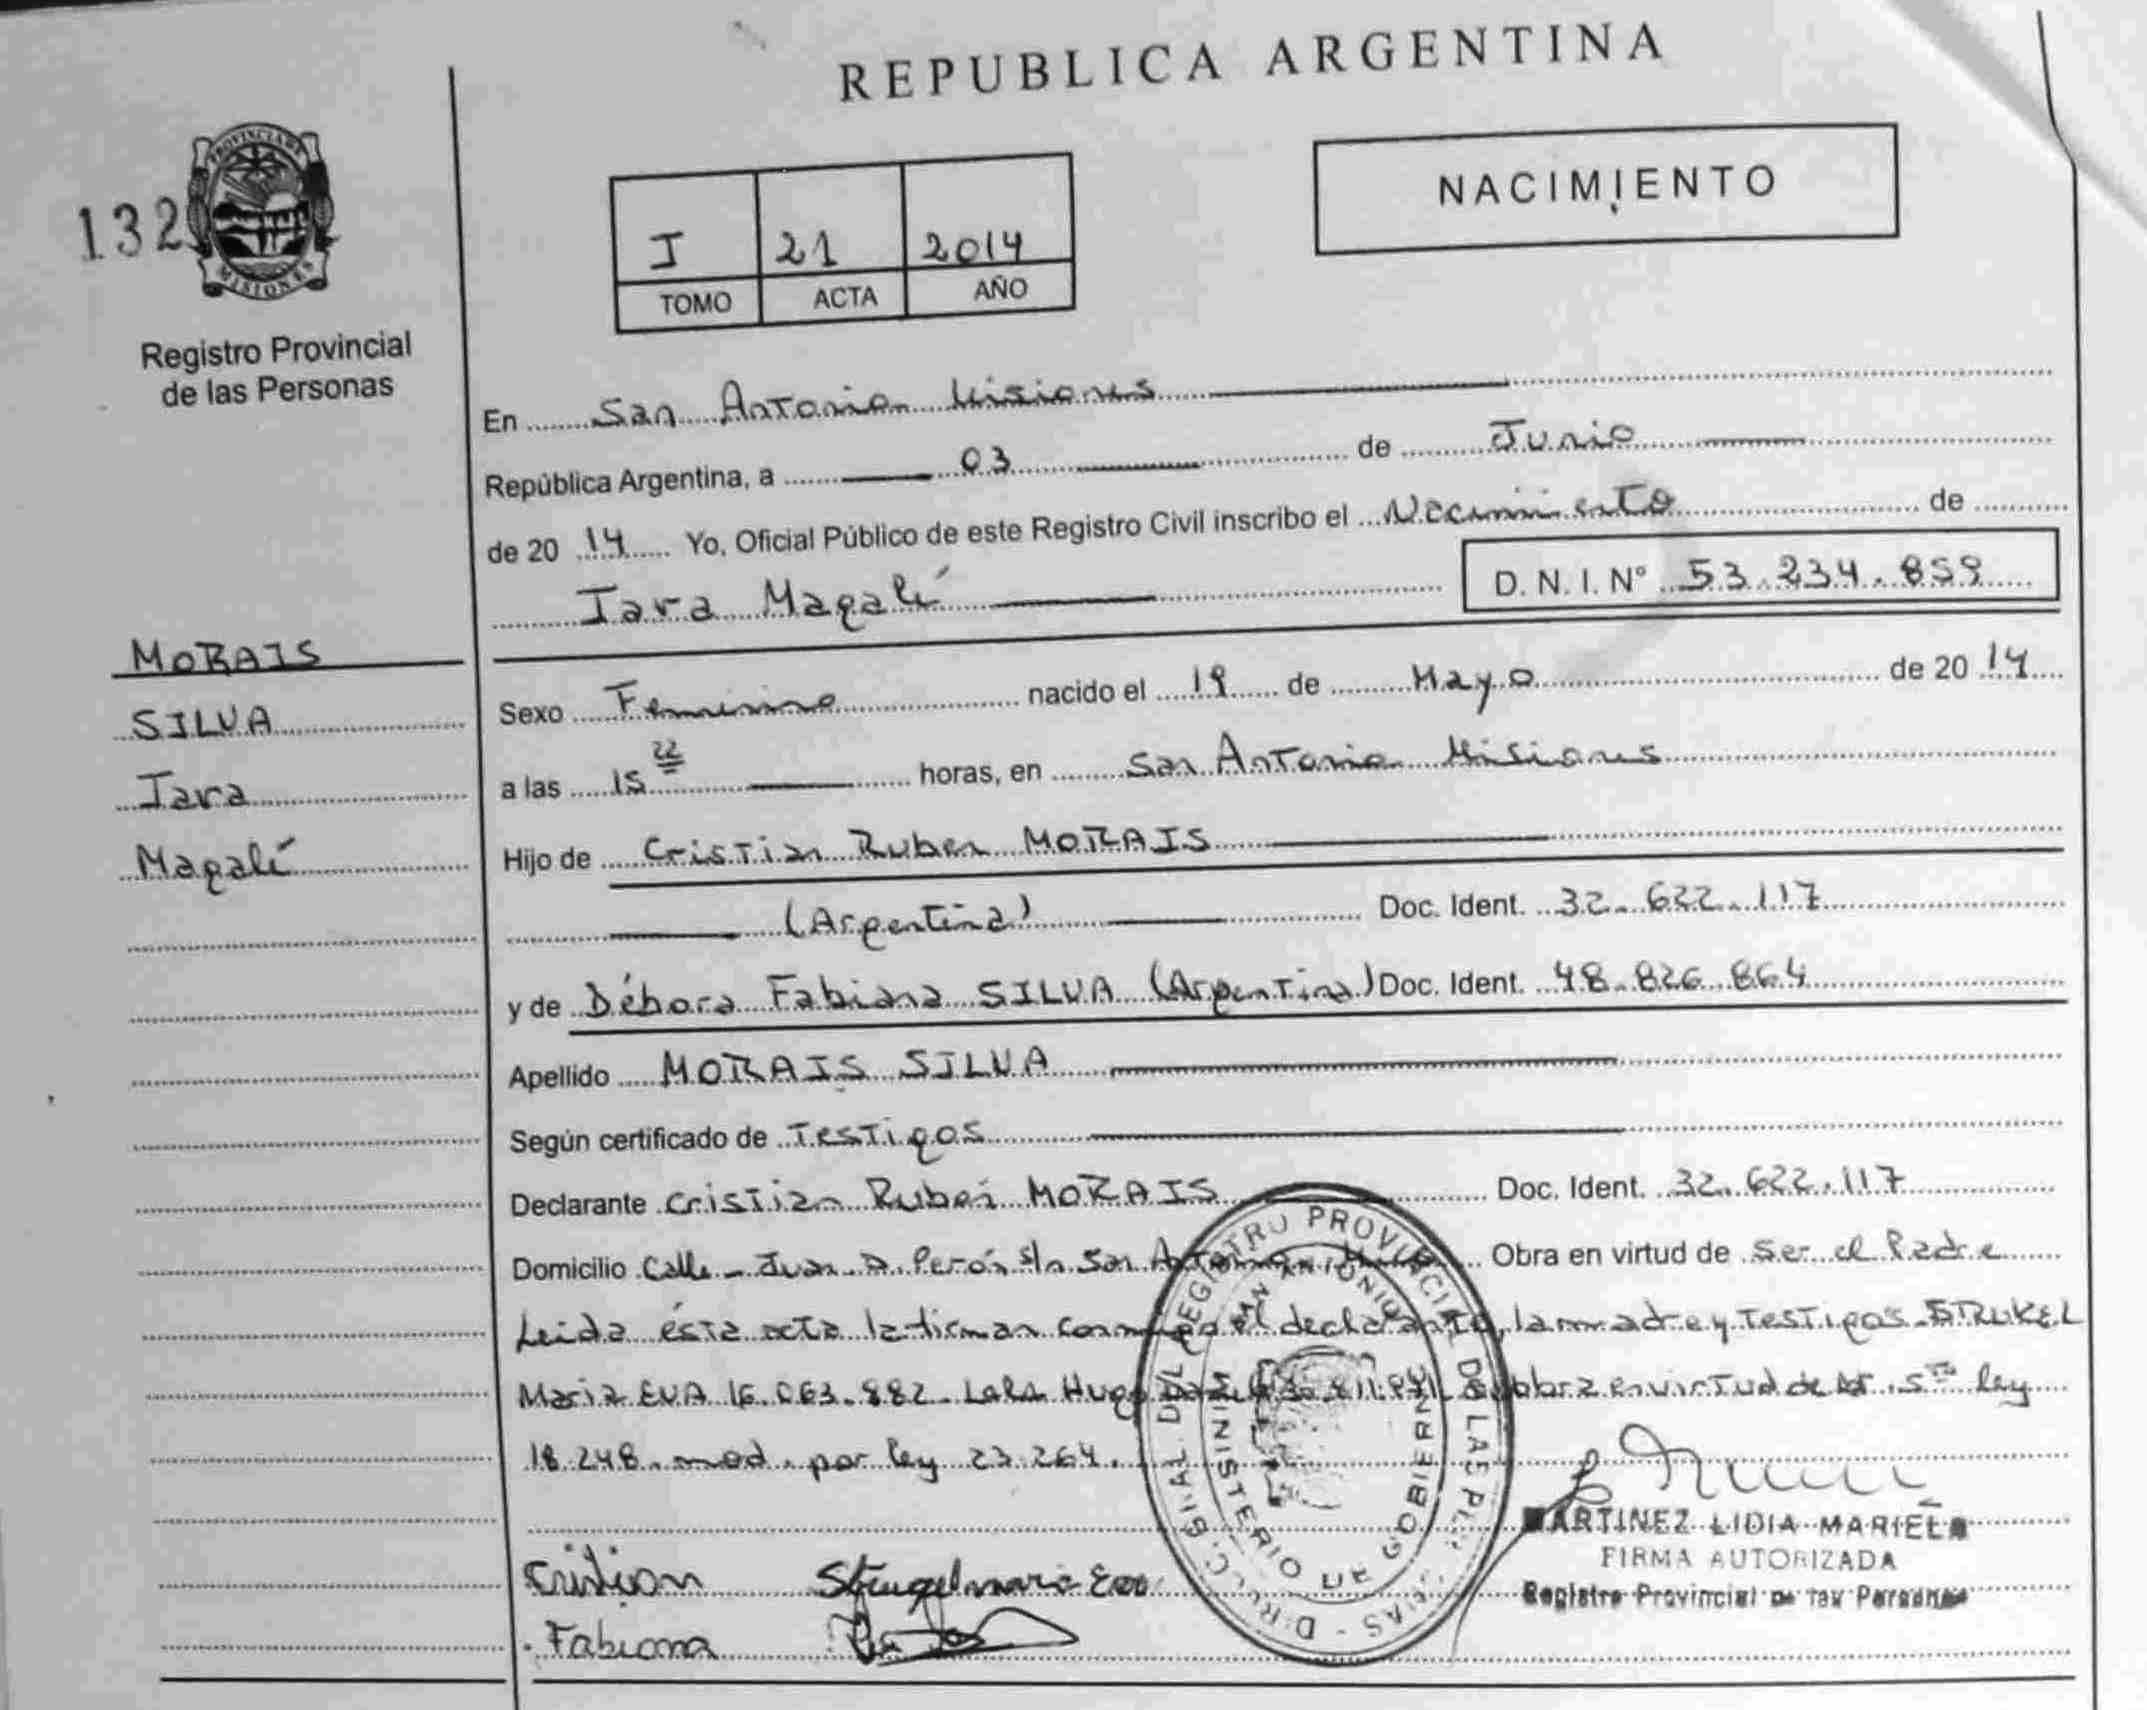 REPUBLICA ARGENTINA
132
PROVINCIA DE
MISIONES
Registro Provincial
de las Personas
I 21 2014
TOMO ACTA AÑO
NACIMIENTO
En San Antonio Misiones
República Argentina, a 03 de Junio
de 20 14 Yo, Oficial Público de este Registro Civil inscribo el Nacimiento de
Iara Magalí D. N. I. N° 53.234.859
MORAIS
SILVA
Iara
Magalí
Sexo Femenino nacido el 19 de Mayo de 20 14
a las 15 22 horas, en San Antonio Misiones
Hijo de Cristian Ruben MORAIS
(Argentina) Doc. Ident. 32.622.117
y de Débora Fabiana SILVA (Argentina) Doc. Ident. 48.826.864
Apellido MORAIS SILVA
Según certificado de Testigos
Declarante Cristian Ruben MORAIS Doc. Ident. 32.622.117
Domicilio Calle - Juan D. Perón s/n San Antonio Obra en virtud de Ser el Padre
Leida ésta acta la firman conmigo el declarante, la madre y Testigos
Maria EVA 16.063.882 Hugo obra en virtud de 5 ley
18.248 mod. por ley 23.264.
REGISTRO PROVINCIAL DE LAS
SAN ANTONIO
MINISTERIO DE GOBIERNO
MARTINEZ LIDIA MARIELA
FIRMA AUTORIZADA
Registro Provincial de las Personas
Cristian
Fabiana